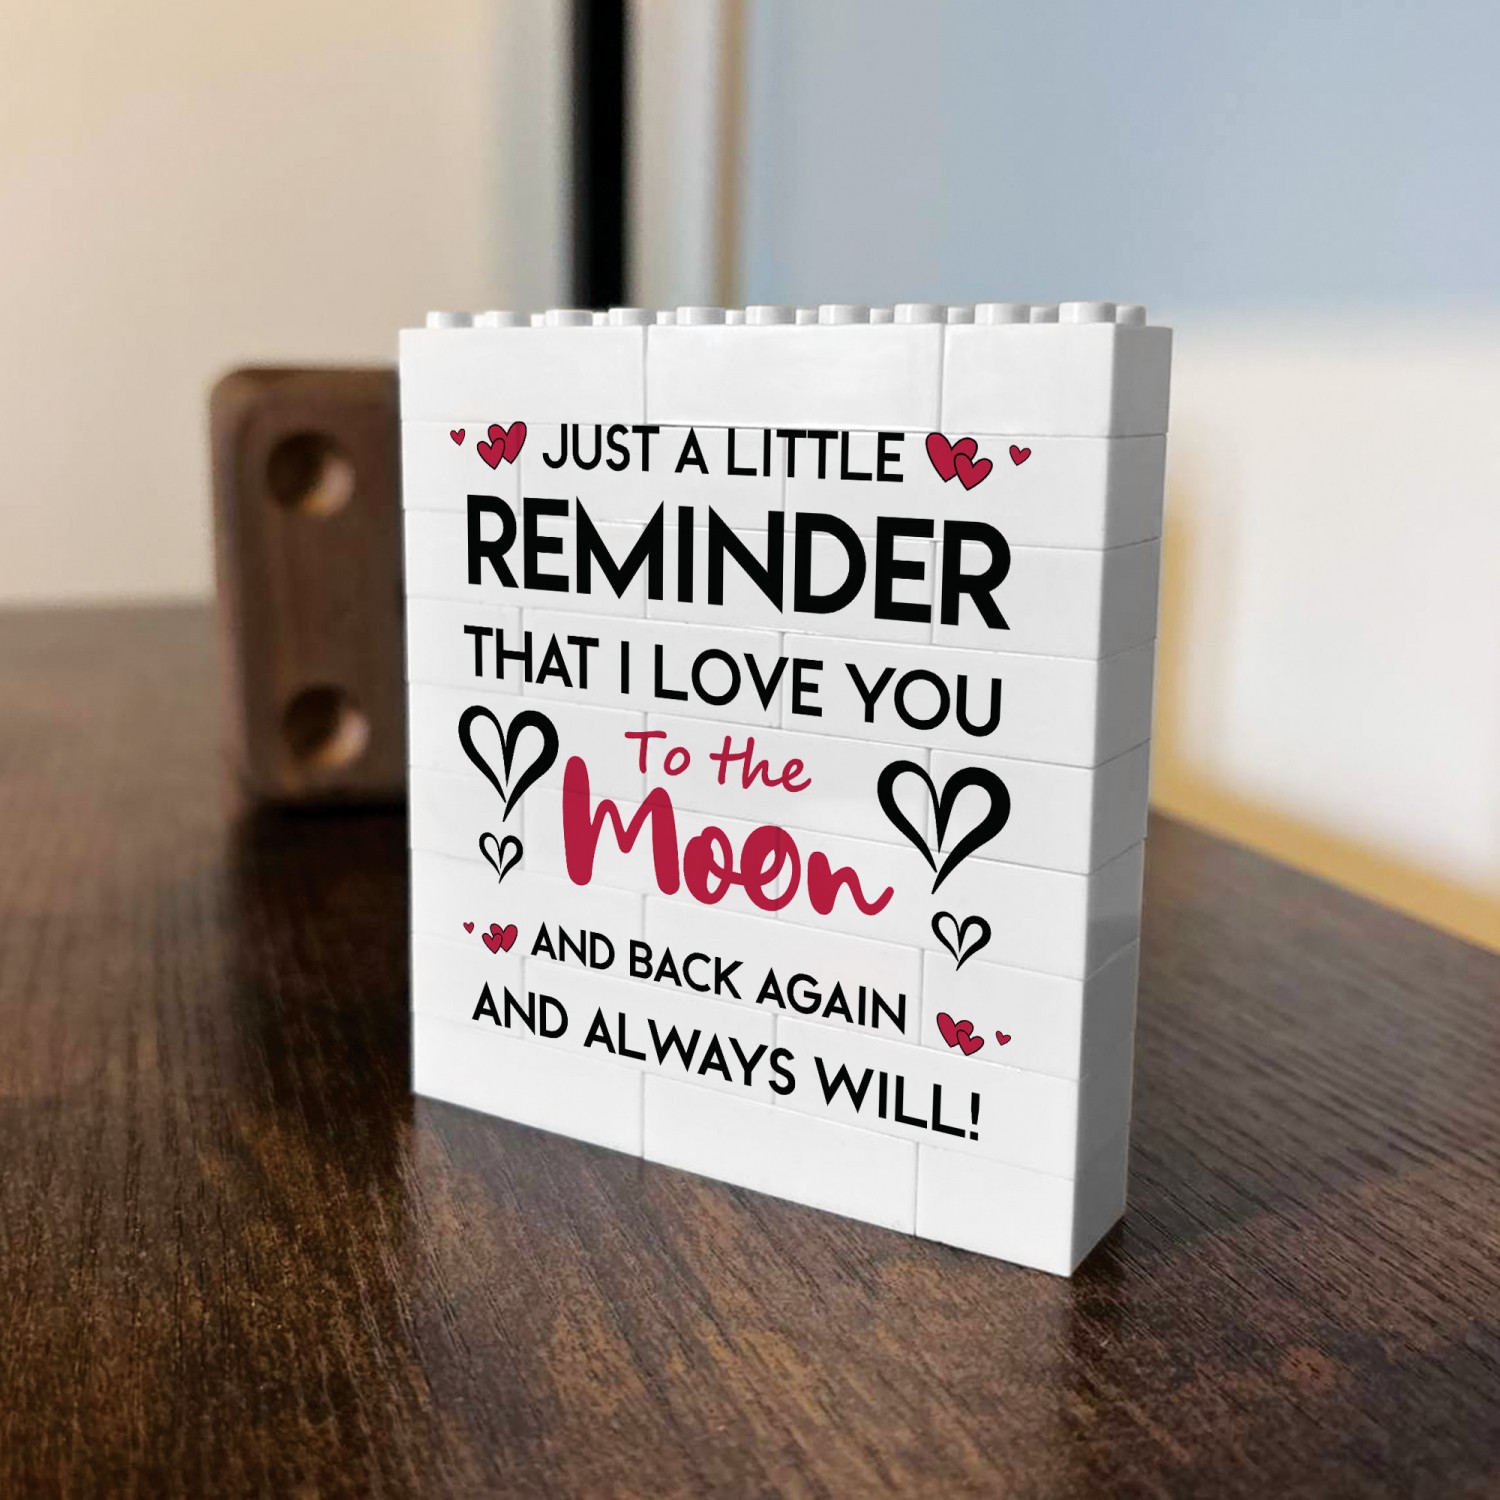 JUST A LITTLE
REMINDER
THAT I LOVE YOU
To the
Moon
AND BACK AGAIN
AND ALWAYS WILL!